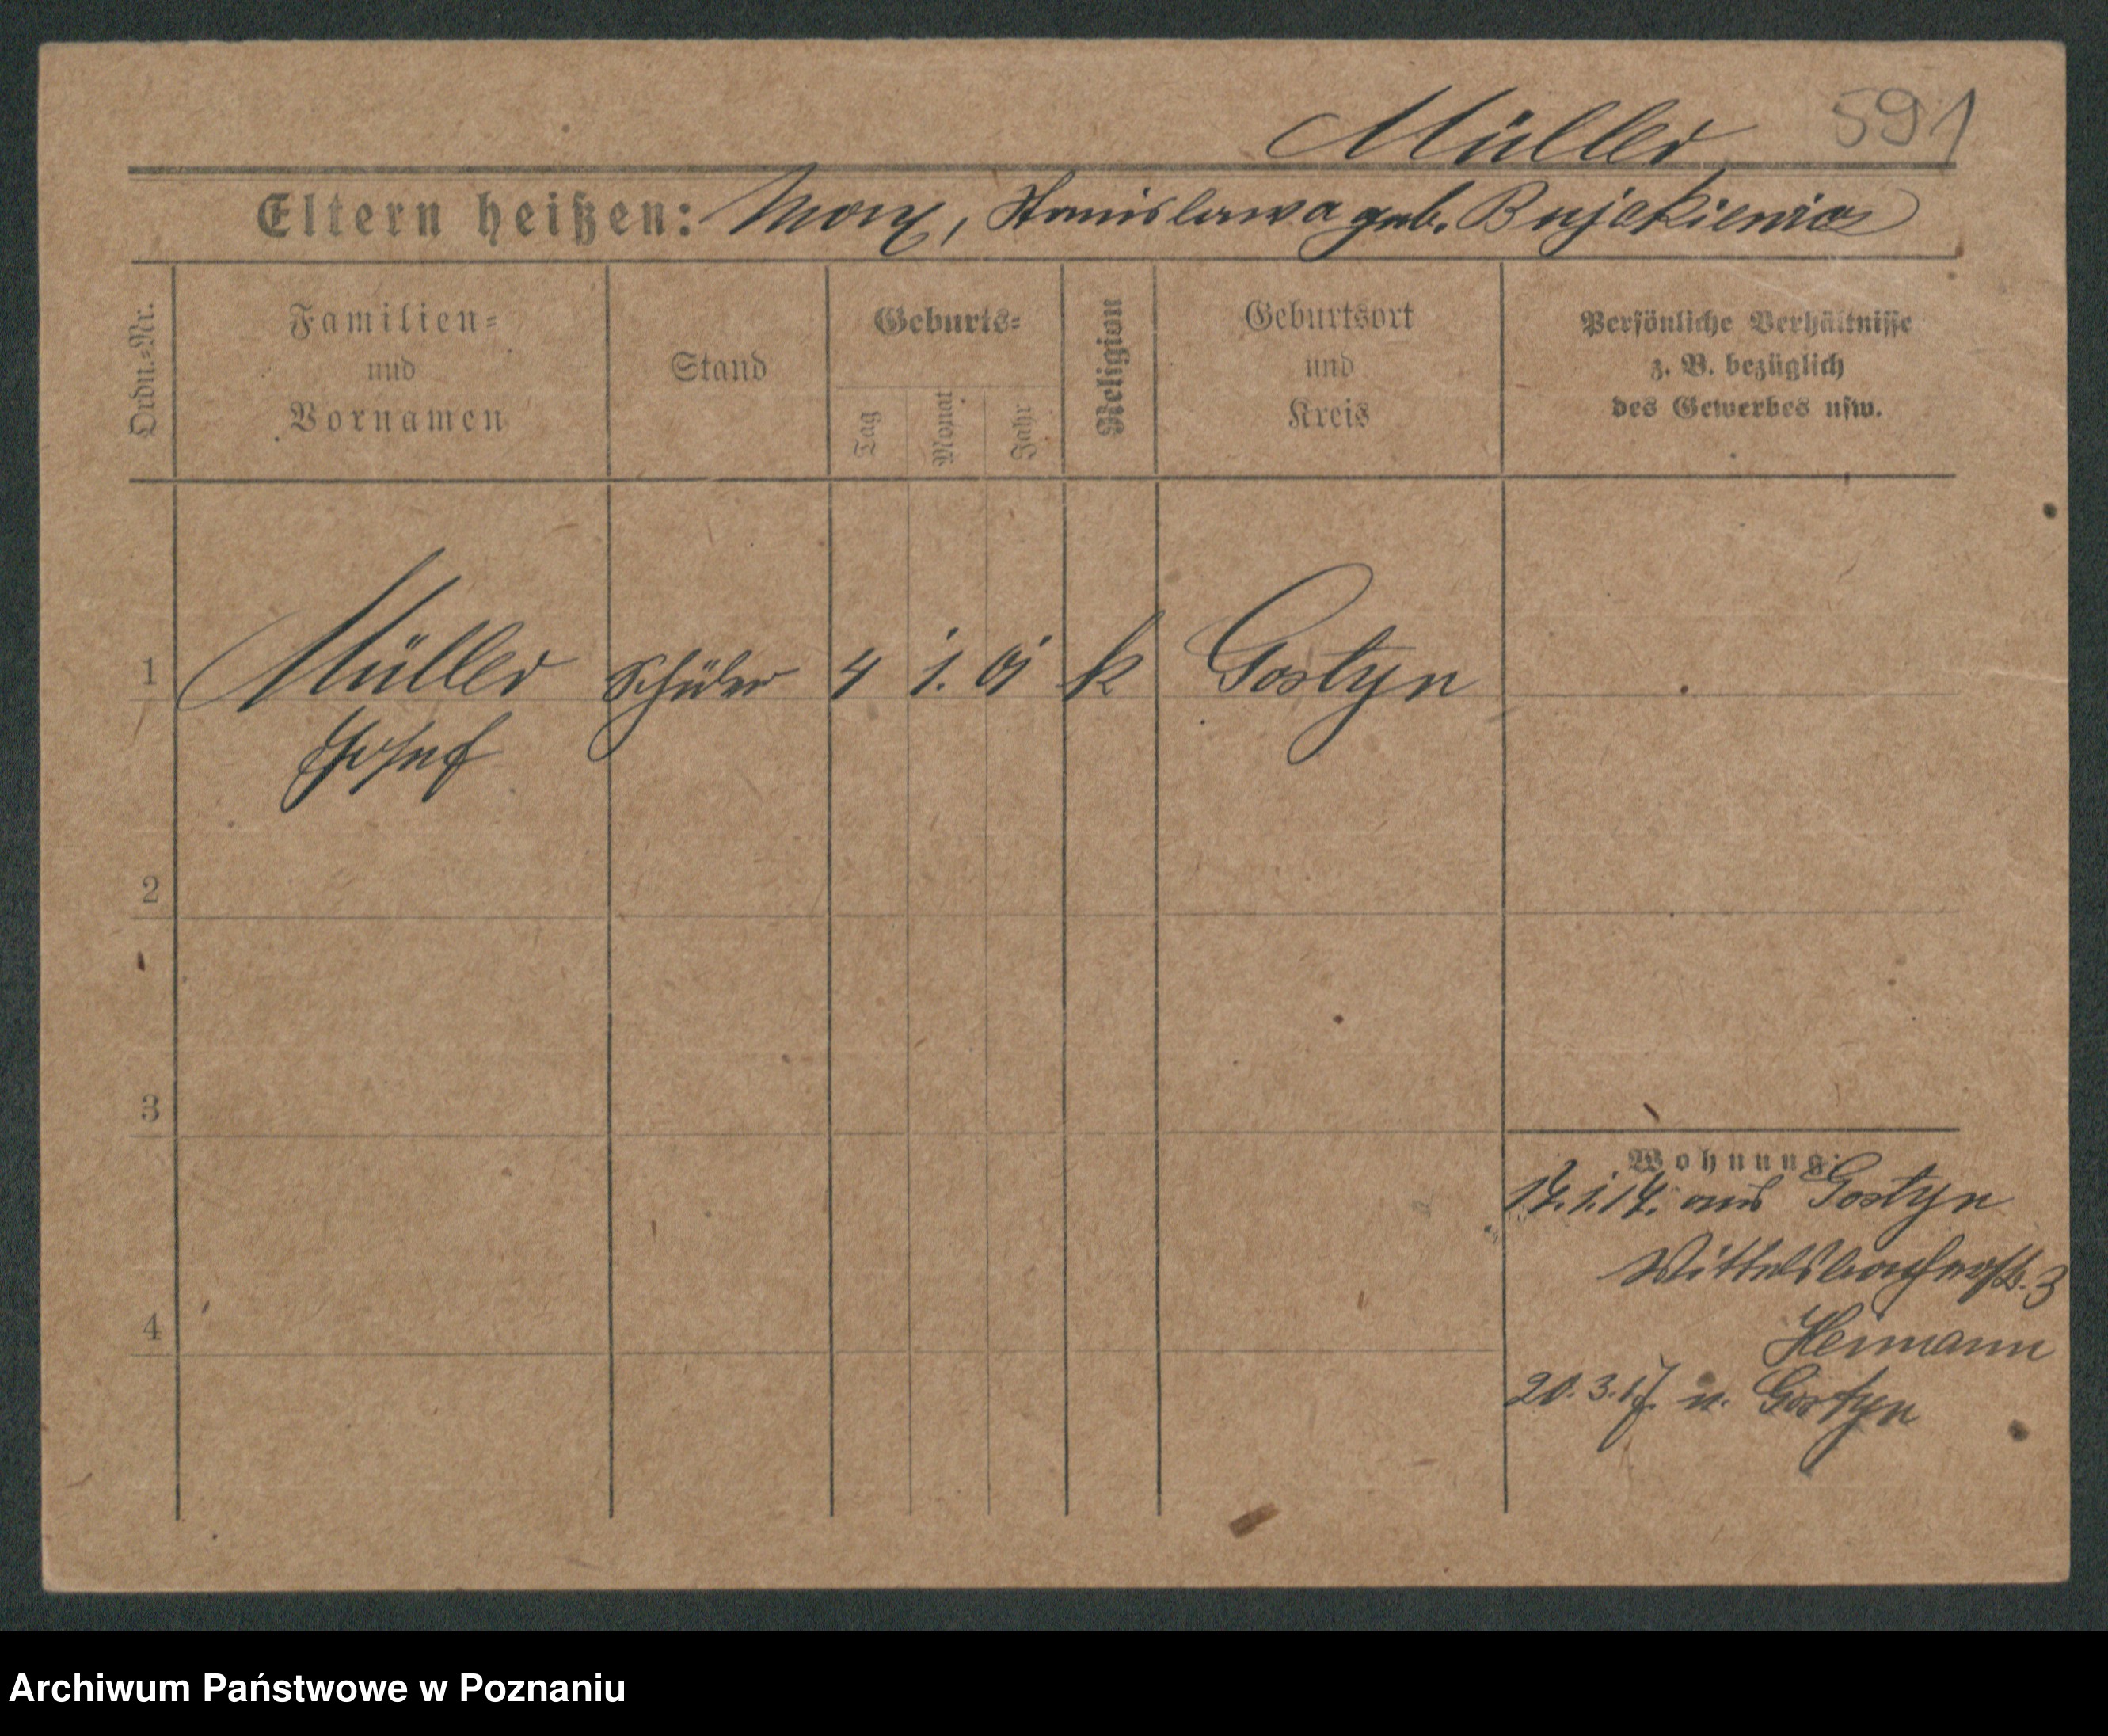 Müller 591
Eltern heißen: Max, Stanislawa geb. Bujakiewicz
Ordn.-Nr.
Familien-
und
Vornamen
Stand
Geburts-
Tag
Monat
Jahr
Religion
Geburtsort
und
Kreis
Persönliche Verhältnisse
z. B. bezüglich
des Gewerbes usw.
1 Müller Schüler 4 1. k Gostyn
Josef
2
3
4
Wohnung:
aus Gostyn
Wittelsbacherstr. 3
Heimann
20. 3. 17. n. Gostyn
Archiwum Państwowe w Poznaniu